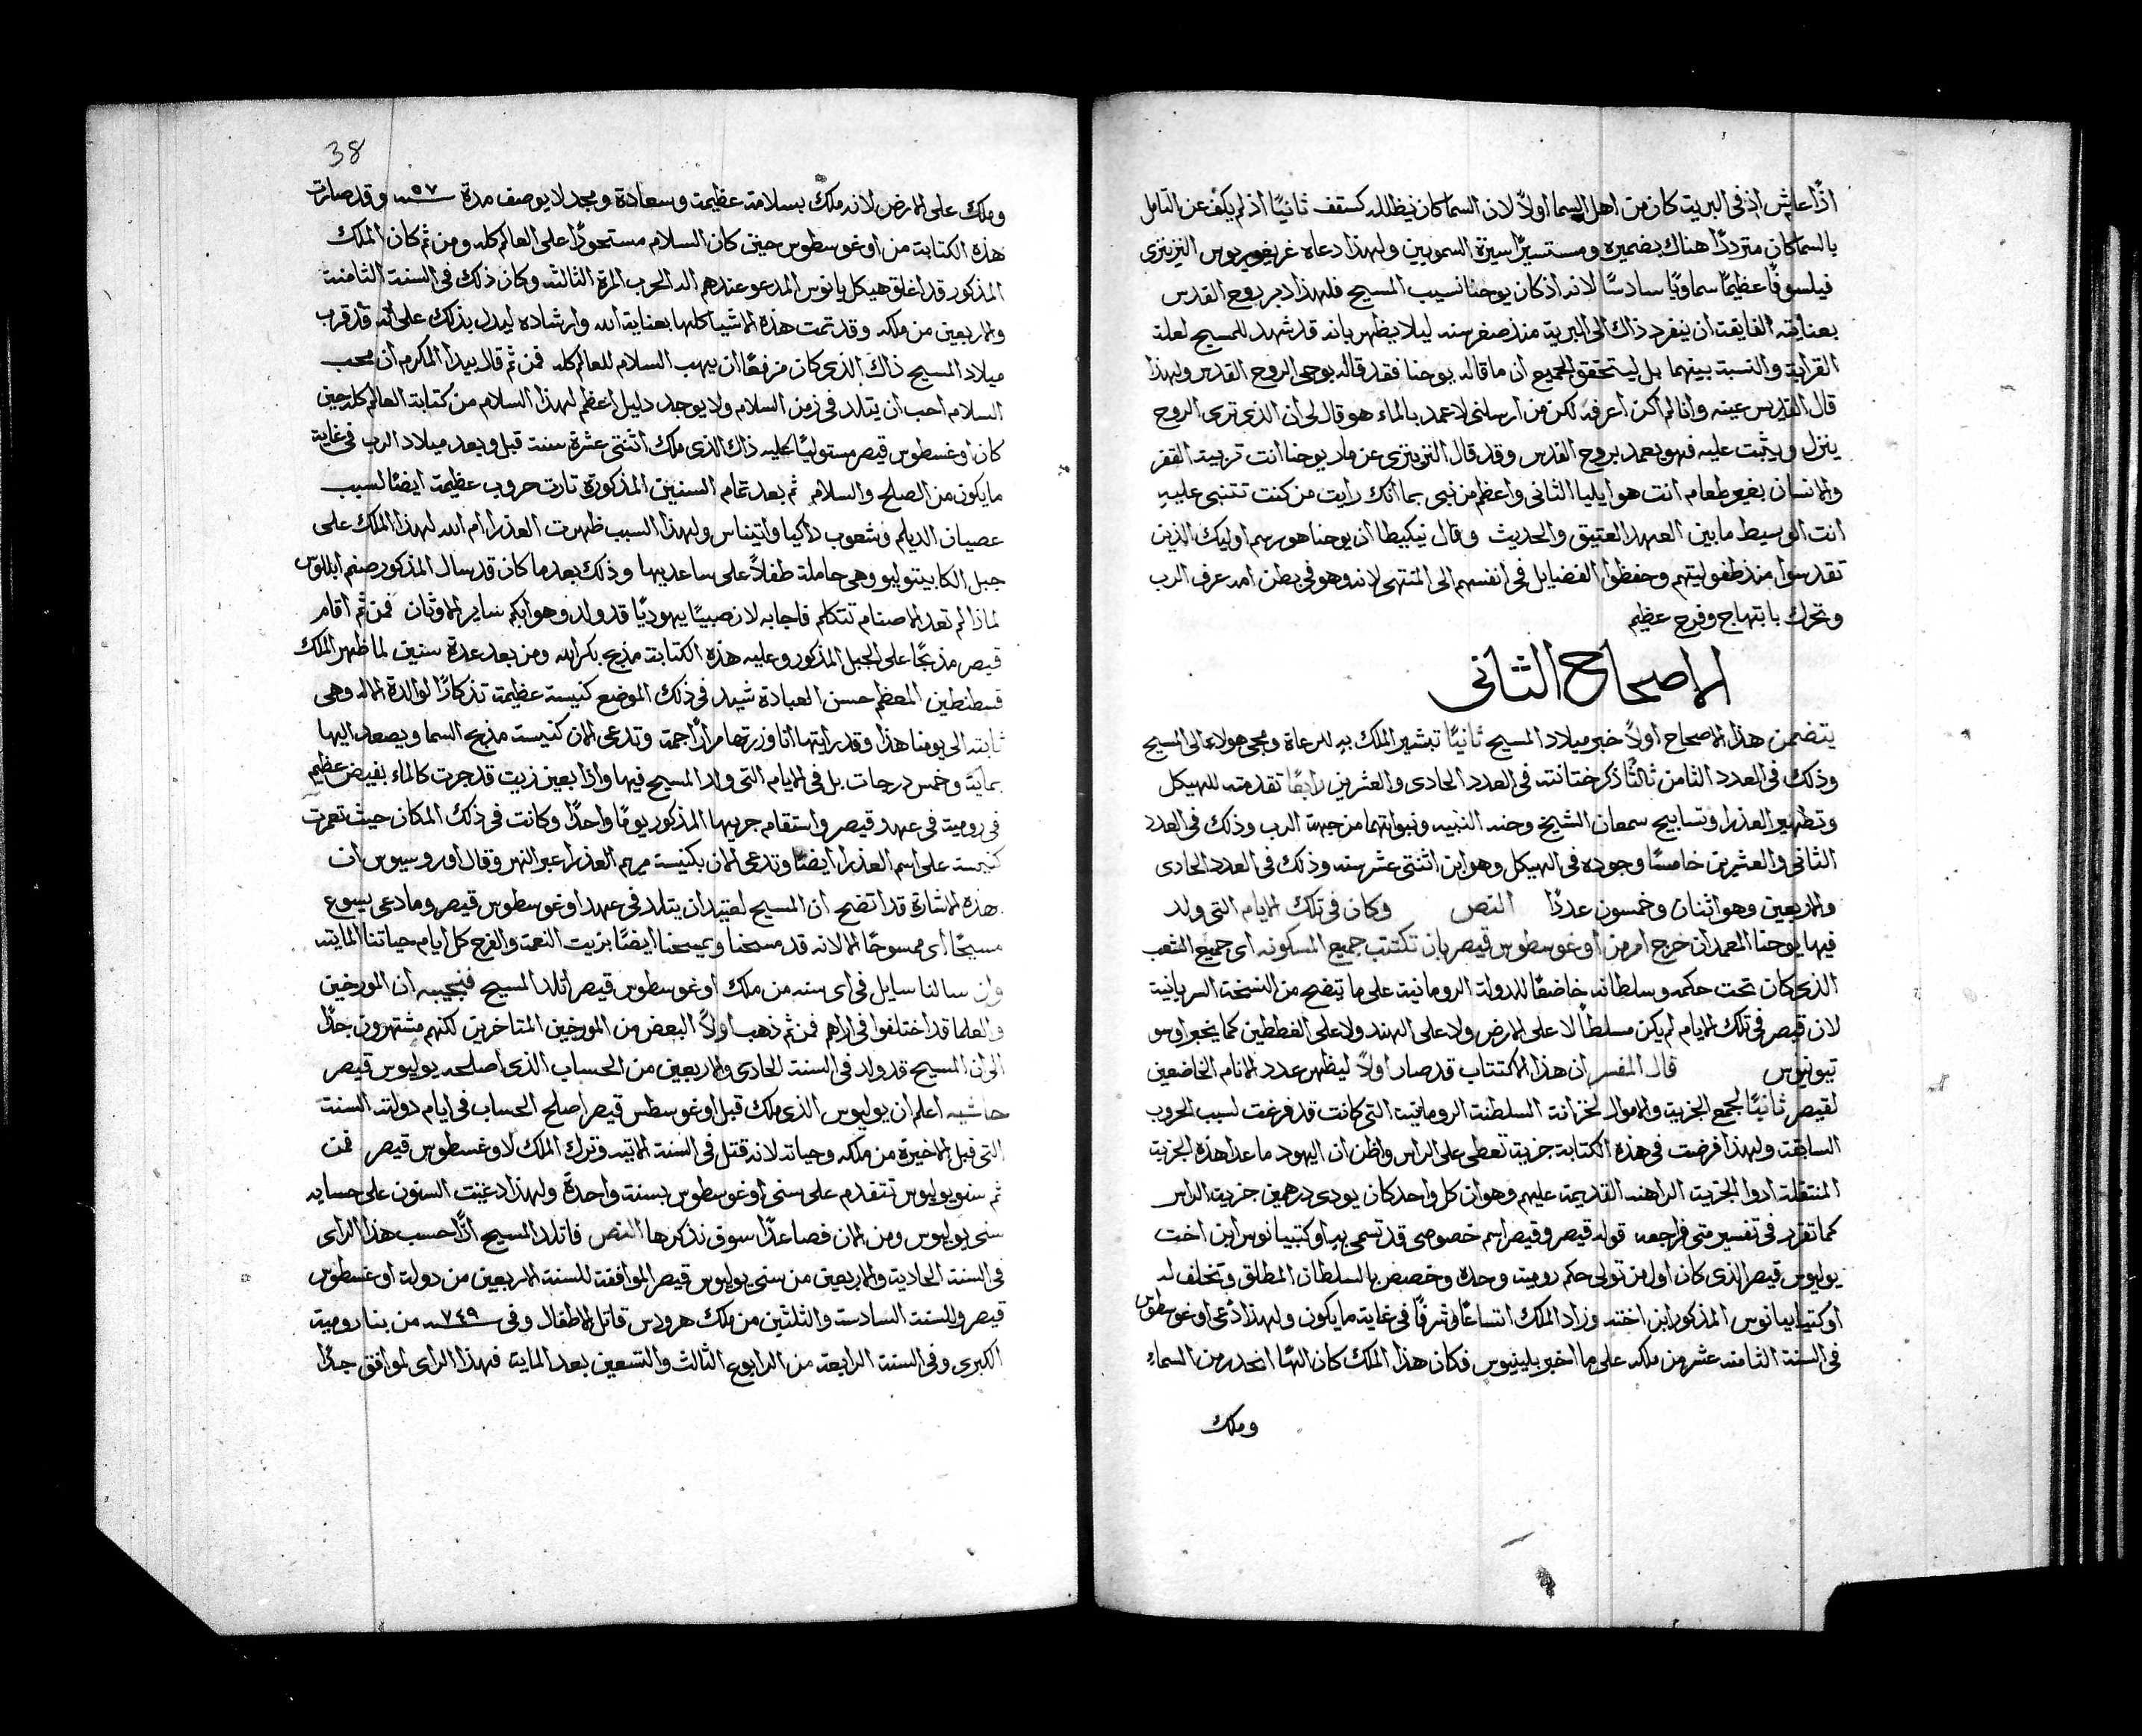 اذًا عاش اذ في البرية كان من اهل السما اولاً لان السما كان يظلله كسقف ثانيًا اذ لم يكف عن التامل
بالسما كان مترددًا هناك بضميره ومستسيرًا سيرة السمويين ولهذا دعاه غريغوريوس النزينزي
فيلسوفًا عظيمًا سماويًا سادسًا لانه اذ كان يوحنا نسيب المسيح فلهذا دبر روح القدس
بعنايته الفايقة ان ينفرد ذاك الى البرية منذ صغر سنه ليلا يظهر بانه قد شهد للمسيح لعلة
القرابة والنسبة بينهما بل ليتحقق الجميع ان ما قاله يوحنا فقد قاله بوحي الروح القدس ولهذا
قال القديس عينه وانا لم اكن اعرفه لكن من ارسلني لاعمد بالماء هو قال لي ان الذي ترى الروح
ينزل ويثبت عليه فهو يعمد بروح القدس وقد قال النزينزي عن مار يوحنا انت تربية القفر
والانسان بغير طعام انت هو ايليا الثاني واعظم من نبي بما انك رايت من كنت تتنبى عليه
انت الوسيط ما بين العهد العتيق والحديث وقال نيكيطا ان يوحنا هو رسم اوليك الذين
تقدسوا منذ طفوليتهم وحفظوا الفضايل في انفسهم الى المنتهى لانه وهو في بطن امه عرف الرب
وتحرك بابتهاج وفرح عظيم
الاصحاح الثاني
يتضمن هذا الاصحاح اولاً خبر ميلاد المسيح ثانيًا تبشير الملك به للرعاة ومجي هولاء الى المسيح
وذلك في العدد الثامن ثالثًا ذكر ختانته في العدد الحادي والعشرين رابعًا تقدمته للهيكل
وتطهير العذرا وتسابيح سمعان الشيخ وحنه النبيه ونبواتهما من جهة الرب وذلك في العدد
الثاني والعشرين خامسًا وجوده في الهيكل وهو ابن اثنتي عشر سنه وذلك في العدد الحادي
والاربعين وهو اثنان وخمسون عددًا النص وكان في تلك الايام التي ولد
فيها يوحنا المعمدان خرج امر من اوغوسطوس قيصر بان تكتتب جميع المسكونه اي جميع الشعب
الذي كان تحت حكمه وسلطانه خاضعًا للدولة الرومانية على ما يتضح من النسخة السريانية
لان قيصر في تلك الايام لم يكن مسلطًا لا على الارض ولا على الهند ولا على القطيين كما يخبر اوسو
تيونيوس قال المفسر ان هذا الاكتتاب قد صار اولاً ليظهر عدد الانام الخاضعين
لقيصر ثانيًا لجمع الجزية والاموال لخزانة السلطنة الرومانية التي كانت قد فرغت لسبب الحروب
السابقة ولهذا فرضت في هذه الكتابة جزية تعطى على الراس واظن ان اليهود ما عدا هذه الجزية
المنتقلة ادوا الجزية الراهنه القديمة عليهم وهو ان كل واحد كان يودي درهمين جزية الراس
كما تقرر في تفسير متى فراجعه قوله قيصر وقيصر اسم خصوصي قد تسمى به اوكتبيانوس ابن اخت
يوليوس قيصر الذي كان اول من تولى حكم رومية وحده وخصص بالسلطان المطلق وتخلف له
اوكتيابيانوس المذكور ابن اخته وزاد الملك اتساعًا وشرفًا في غاية ما يكون ولهذا دُعي اوغوسطوس
في السنة الثامنه عشر من ملكه على ما اخبر بلينيوس فكان هذا الملك كان الهًا انحدر من السماء
وملك
38
وملك على الارض لانه ملك بسلامة عظيمة وسعادة ومجد لا يوصف مدة ٥٧ سنه وقد صارت
هذه الكتابة من اوغوسطوس حين كان السلام مستحوذًا على العالم كله ومن ثم كان الملك
المذكور قد اغلق هيكل يانوس المدعو عندهم اله الحرب المرة الثالثه وكان ذلك في السنة الثامنة
والاربعين من ملكه وقد تمت هذه الاشيا كلها بعناية الله وارشاده ليدل بذلك على انه قد قرب
ميلاد المسيح ذاك الذي كان مزمعًا ان يهب السلام للعالم كله فمن ثم قال بيدا المكرم ان محب
السلام احب ان يتلد في زمن السلام ولا يوجد دليل اعظم لهذا السلام من كتابة العالم كله حين
كان اوغسطوس قيصر مستوليًا عليه ذاك الذي ملك اثنتي عشرة سنة قبل وبعد ميلاد الرب في غاية
ما يكون من الصلح والسلام ثم بعد تمام السنين المذكورة ثارت حروب عظيمة ايضًا لسبب
عصيان الديلم وشعوب داكيا واتيناس ولهذا السبب ظهرت العذرا ام الله لهذا الملك على
جبل الكابيتوليو وهي حاملة طفلاً على ساعديها وذلك بعد ما كان قد سال المذكور صنم ابللوس
لماذا لم تعد الاصنام تتكلم فاجابه لان صبيًا يهوديًا قد ولد وهو ابكم ساير الاوثان فمن ثم اقام
قيصر مذبحًا على الجبل المذكور وعليه هذه الكتابة مذبح بكر الله ومن بعد عدة سنين لما ظهر الملك
قسطنطين المعظم حسن العبادة شيد في ذلك الموضع كنيسة عظيمة تذكارًا لوالدة الاله وهي
ثابته الى يومنا هذا وقد رايتها انا وزرتها مرارًا جمة وتدعى الان كنيسة مذبح السما ويصعد اليها
بماية وخمس درجات بل في الايام التي ولد المسيح فيها واذا بعين زيت قد جرت كالماء بفيض عظيم
في رومية في عهد قيصر واستقام جريها المذكور يومًا واحدًا وكانت في ذلك المكان حيث تعمرت
كنيسة على اسم العذرا ايضًا وتدعى الان بكنيسة مريم العذرا عبر النهر وقال اوروسيوس ان
هذه الاشارة قد اتضح ان المسيح لعتيد ان يتلد في عهد اوغوسطوس قيصر وما دعي يسوع
مسيحًا اي ممسوحًا الا لانه قد مسحنا ويمسحنا ايضًا بزيت النعمة والفرح كل ايام حياتنا المايته
وان سالنا سايل في اي سنه من ملك اوغوسطوس قيصر اتلد المسيح فنجيبه ان المورخين
والعلما قد اختلفوا في اراهم فمن ثم ذهب اولاً البعض من المورخين المتاخرين لكنهم مشتهرون جدًا
الى ان المسيح قد ولد في السنة الحادي والاربعين من الحساب الذي اصلحه يوليوس قيصر
حاشيه اعلم ان يوليوس الذي ملك قبل اوغوسطس قيصر اصلح الحساب في ايام دولته السنة
التي قبل الاخيرة من ملكه وحياته لانه قتل في السنة الاتيه وترك الملك لاوغسطوس قيصر فمن
ثم سنو يوليوس تتقدم على سني اوغوسطوس بسنة واحدة ولهذا دعيت السنون على حسابه
سني يوليوس ومن الان فصاعدًا سوف نذكرها النص فاتلد المسيح اذًا حسب هذا الراي
في السنة الحادية والاربعين من سني يوليوس قيصر الموافقة للسنة الاربعين من دولة اوغسطوس
قيصر وللسنة السادسة والثلثين من ملك هرودس قاتل الاطفال وفي ٧٤٩ سنه من بنا رومية
الكبرى وفي السنة الرابعة من الرابوع الثالث والتسعين بعد الماية فهذا الراي لموافق جدًا